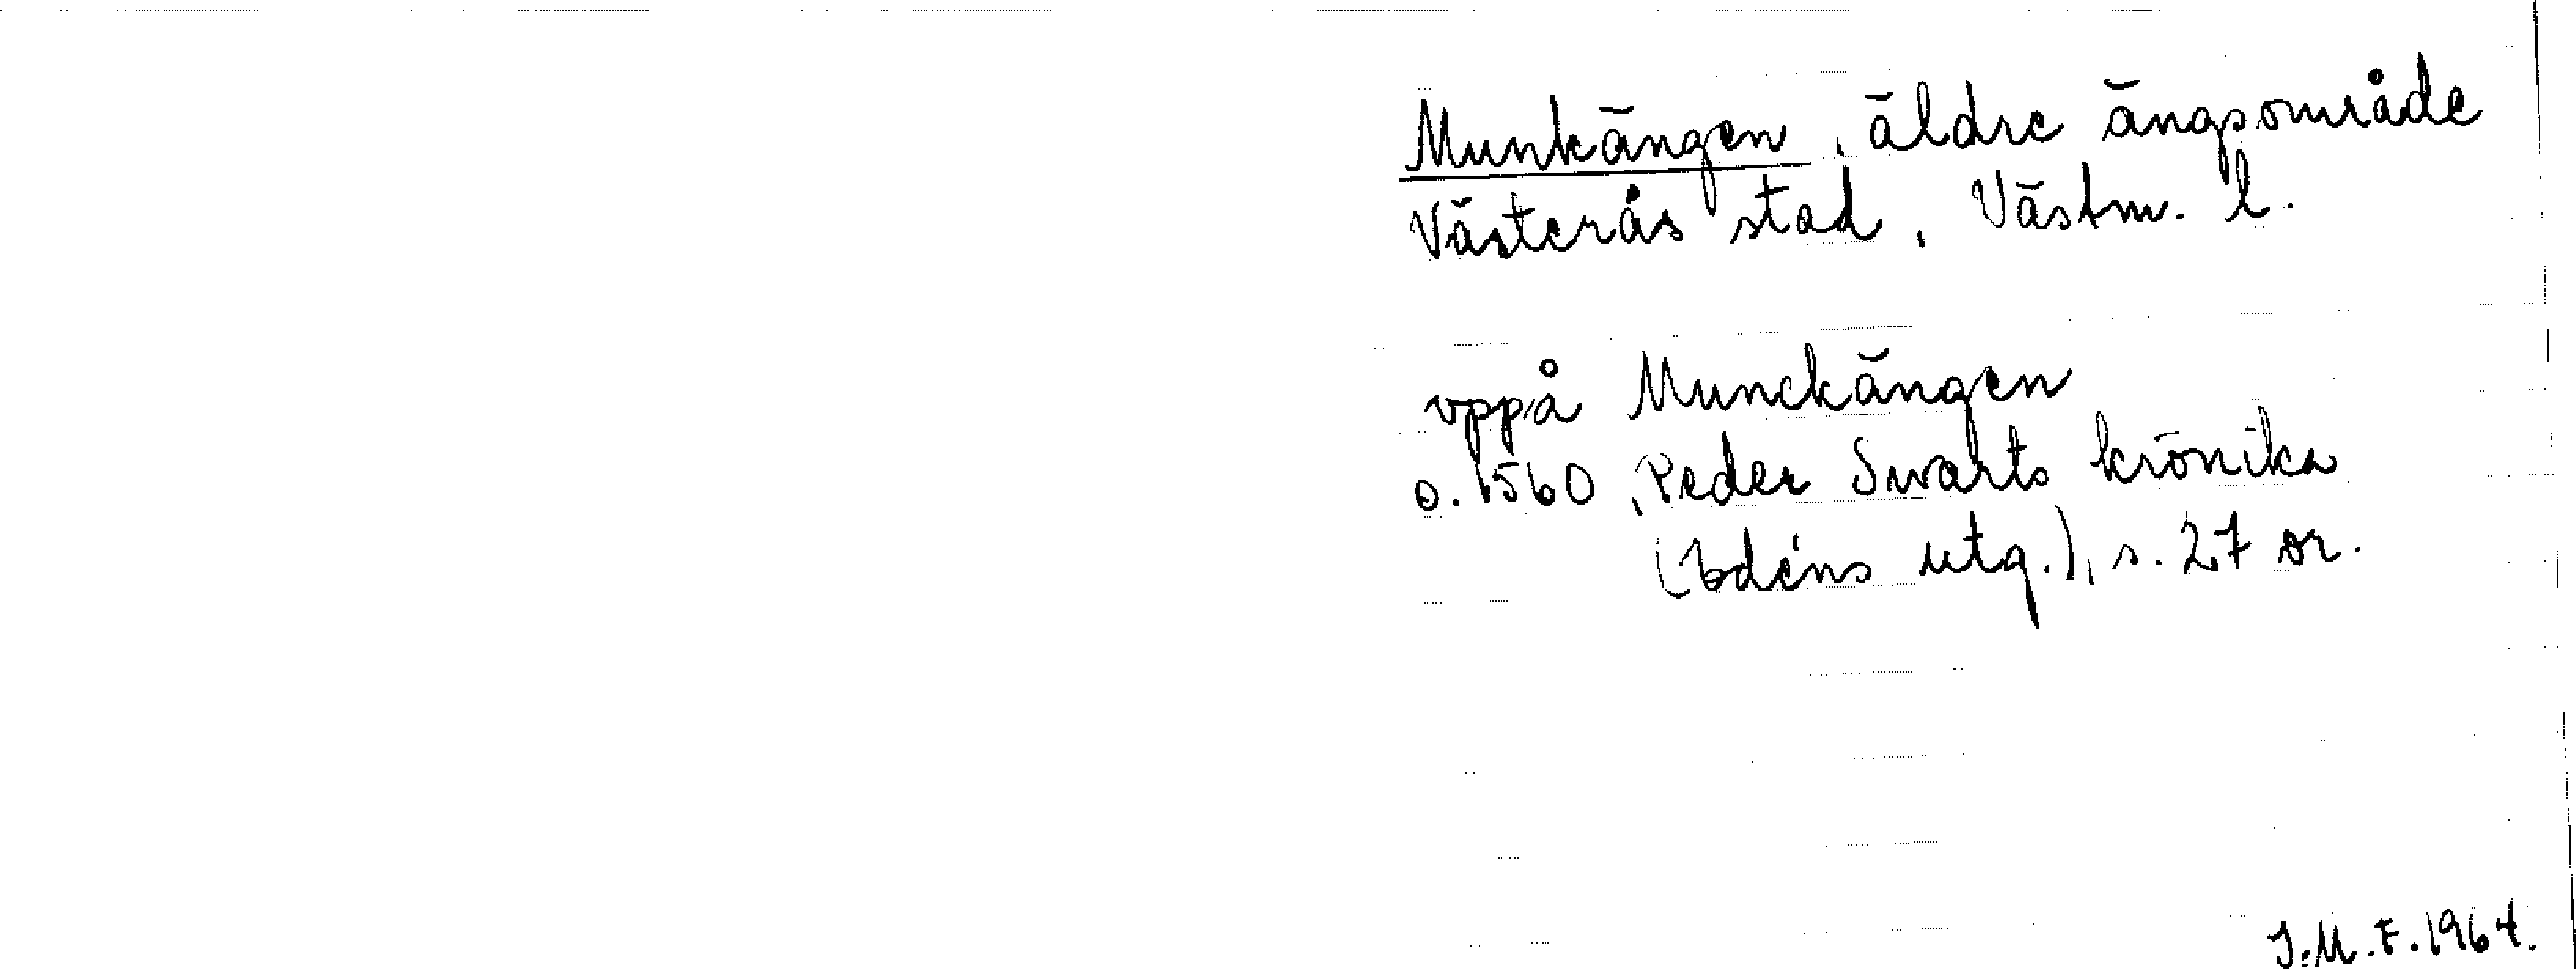 Munkängen, äldre ängsområde
Västerås stad, Västm. l.
vppå Munckängen
o. 1560, Peder Swarts krönika
(Edéns utg.), s. 27 or.
I.M.F. 1964.